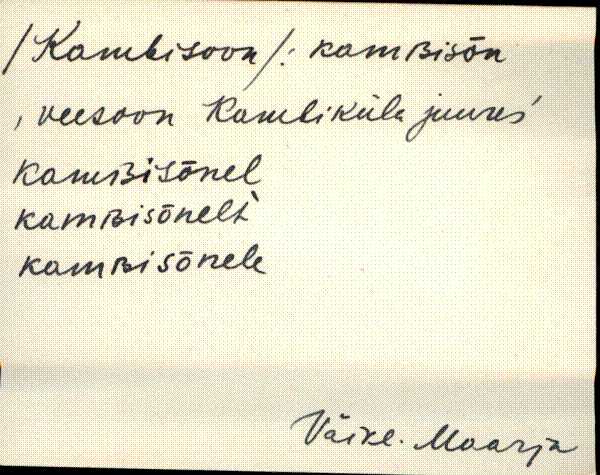 /Kambisoon/: kamʙisōn
, veesoon Kambiküla juures'
kamʙisōnel
kamʙisōnelt̀
kamʙisōnele
Väike-Maarja